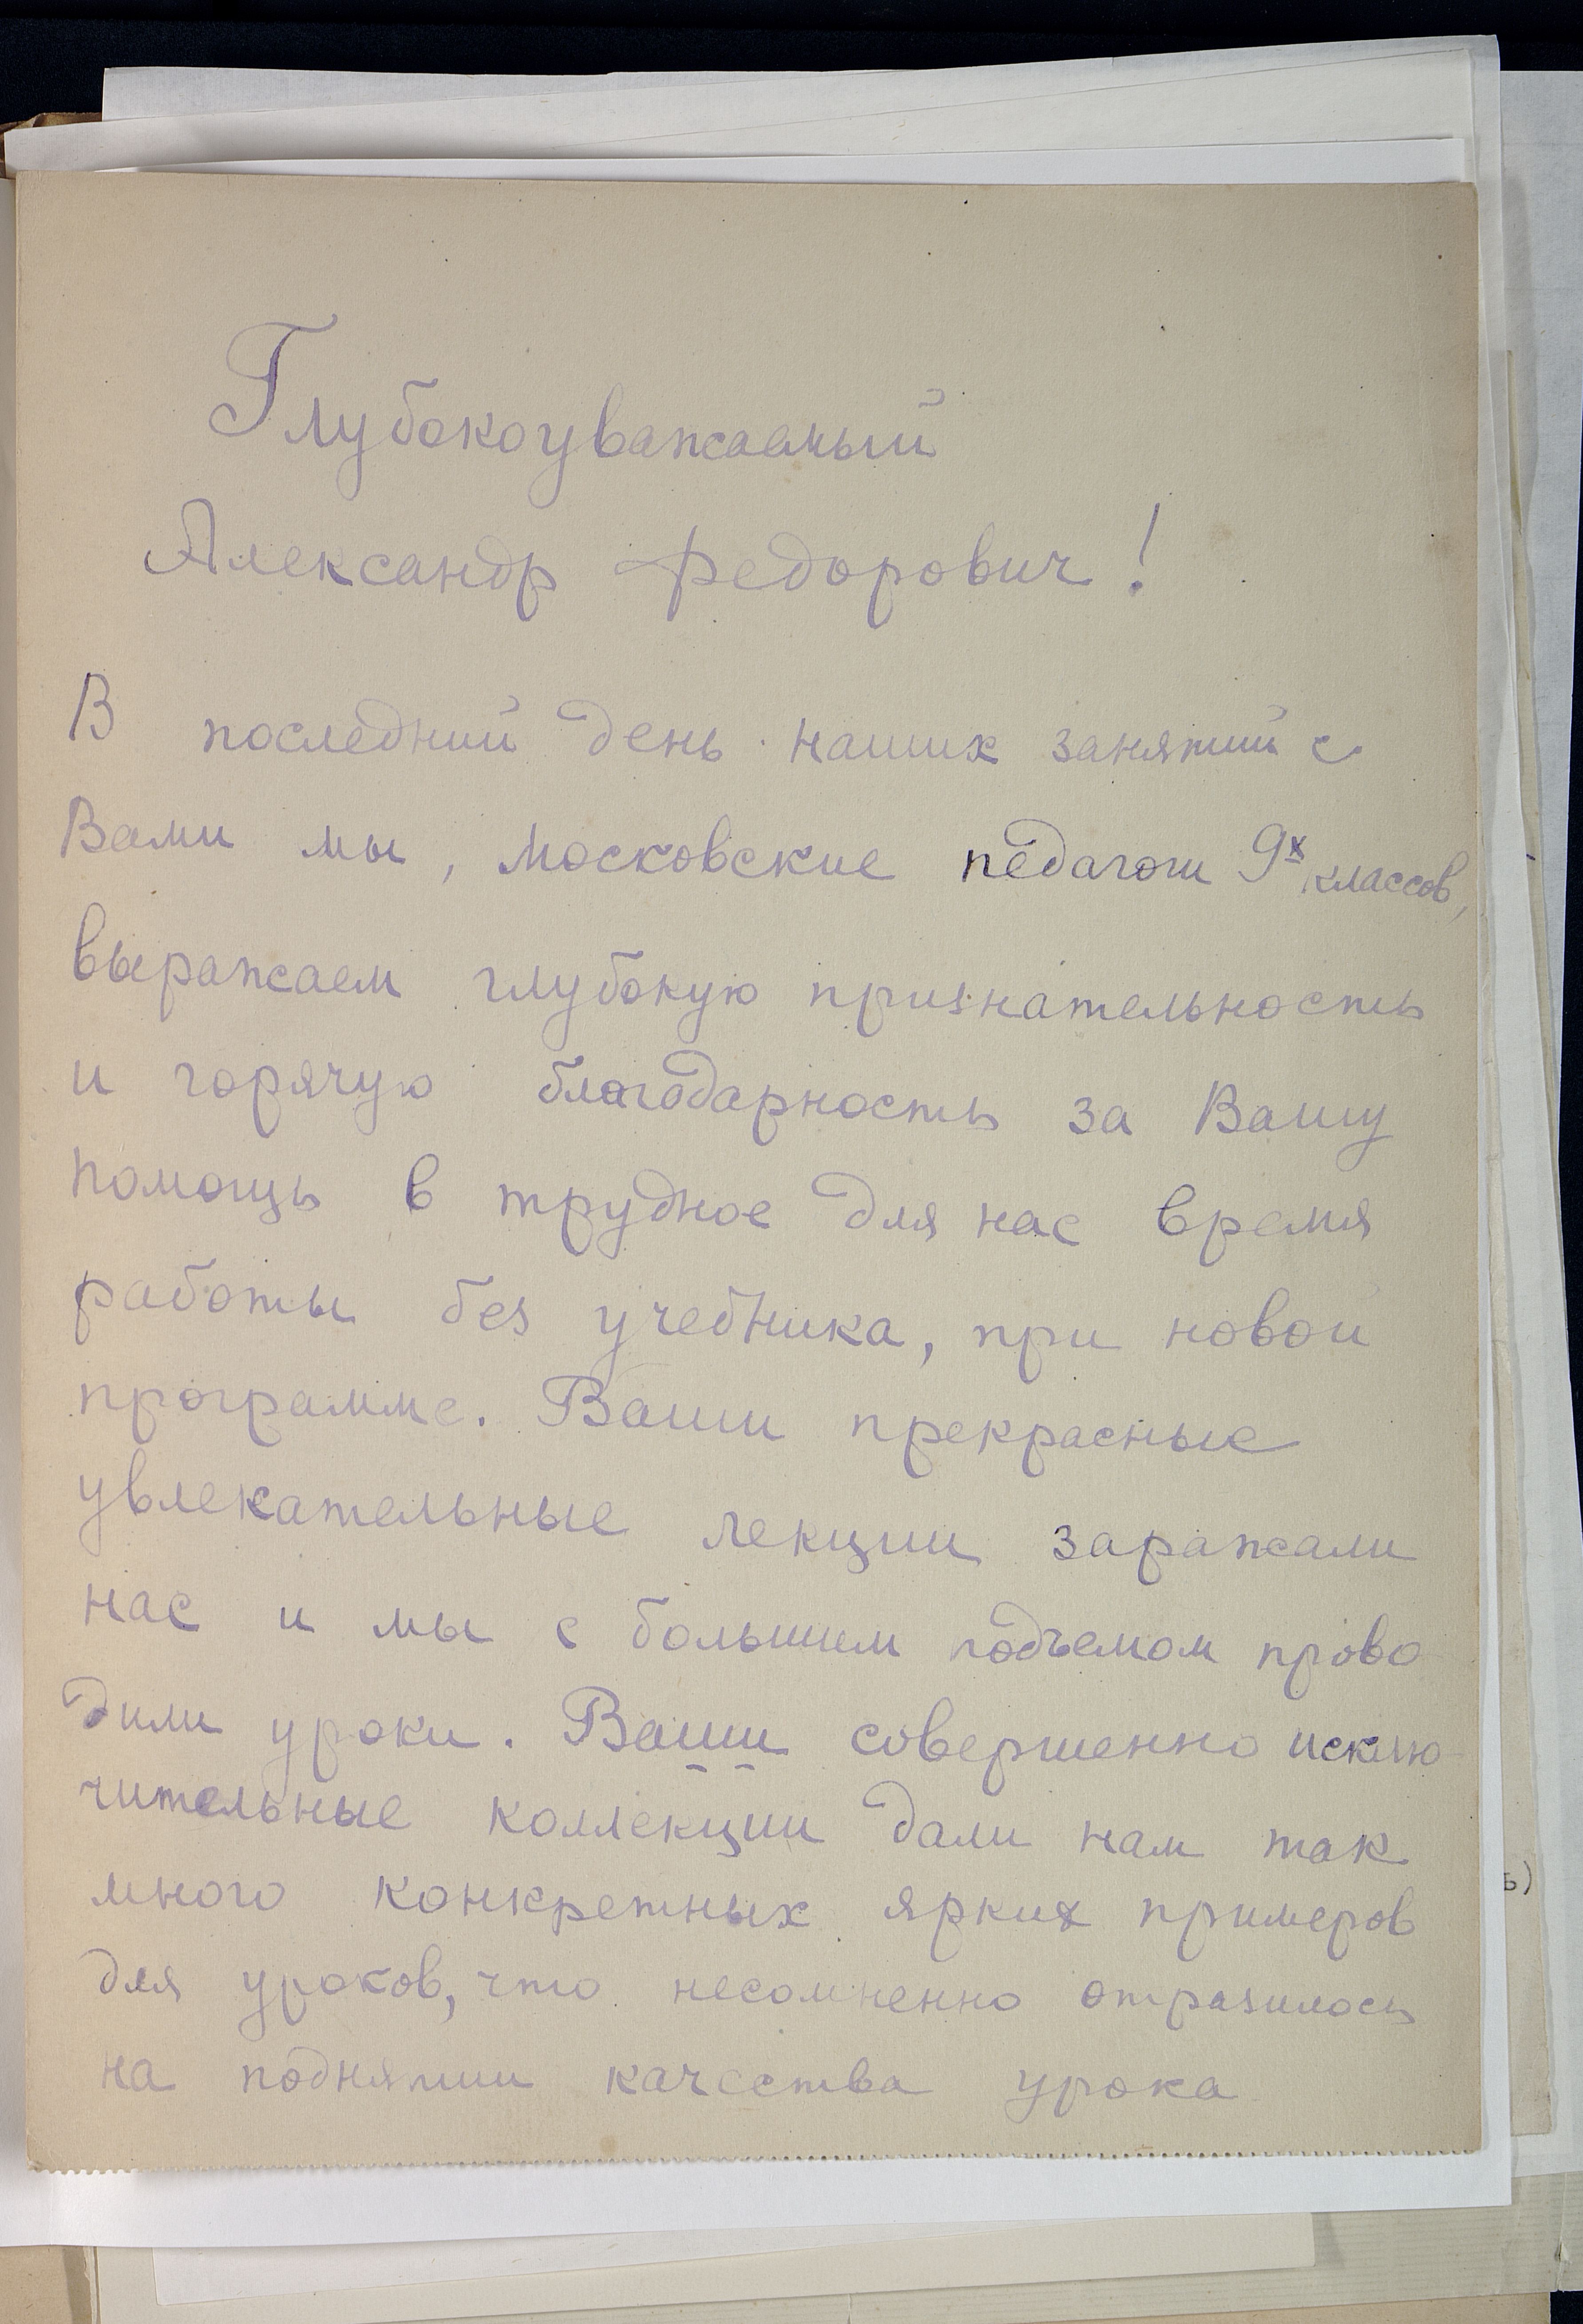 Глубокоуважаемый
Александр Федорович!
В последний день наших занятий с
Вами мы, московские педагоги 9х классов,
выражаем глубокую признательность
и горячую благодарность за Вашу
помощь в трудное для нас время
работы без учебника, при новой
программе. Ваши прекрасные
увлекательные лекции заражали
нас и мы с большим подъемом прово
дили уроки. Ваши совершенно исклю-
чительные коллекции дали нам так
много конкретных ярких примеров
для уроков, что несомненно отразилось
на поднятии качества урока
ь)